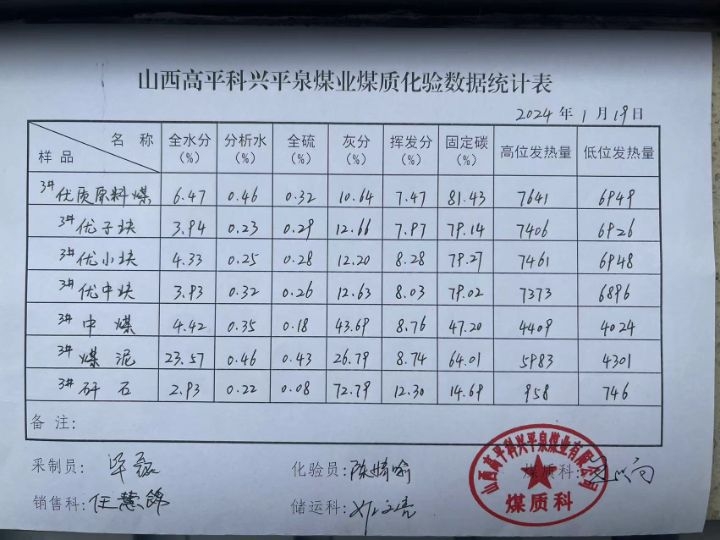 山西高平科兴平泉煤业煤质化验数据统计表
2024 年 1 月 19 日
样品 名称 全水分(%) 分析水(%) 全硫(%) 灰分(%) 挥发分(%) 固定碳(%) 高位发热量 低位发热量
3# 优质原料煤 6.47 0.46 0.32 10.64 7.47 81.43 7641 6949
3# 优子块 3.94 0.23 0.29 12.66 7.97 79.14 7406 6926
3# 优小块 4.33 0.25 0.28 12.20 8.28 79.27 7461 6948
3# 优中块 3.93 0.32 0.26 12.63 8.03 79.02 7373 6896
3# 中煤 4.42 0.35 0.18 43.69 8.76 47.20 4409 4024
3# 煤泥 23.57 0.46 0.43 26.79 8.74 64.01 5983 4301
3# 矸石 2.93 0.22 0.08 72.79 12.30 14.69 958 746
备注:
采制员: 化验员: 煤质科:
销售科: 储运科:
山西高平科兴平泉煤业有限公司
煤质科